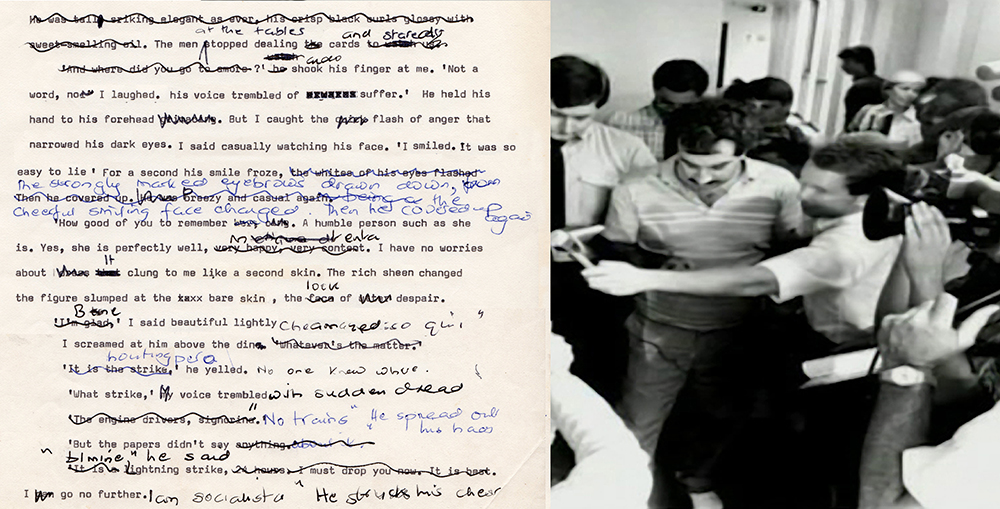 He was tall, striking elegant as ever, his crisp black curls glossy with
at the tables and stared
sweet-smelling oil. The men stopped dealing the cards to
'And where did you go to amore ?' he shook his finger at me. 'Not a
word, no I laughed. his voice trembled of suffer.' He held his
hand to his forehead But I caught the flash of anger that
narrowed his dark eyes. I said casually watching his face. 'I smiled. It was so
easy to lie' For a second his smile froze, the whites of his eyes flashed
The strongly marked eyebrows drawn down,
Then he covered up. breezy and casual again. the
cheerful smiling face changed. Then he covered up
again
'How good of you to remember A humble person such as she
is. Yes, she is perfectly well, very happy, very content. I have no worries
It
about clung to me like a second skin. The rich sheen changed
look
the figure slumped at the bare skin , the face of despair.
Bene
'I'm glad,' I said beautiful lightly
I screamed at him above the din. 'Whatever's the matter.'
'It is the strike,' he yelled. No one knew
'What strike,' My voice trembled with sudden dread
'The engine drivers, signorina." "No trains" He spread out
his hands
'But the papers didn't say anything.
he said
'It is a lightning strike, 24 hours. I must drop you now. It is best.
I go no further. I am socialista" He his chest